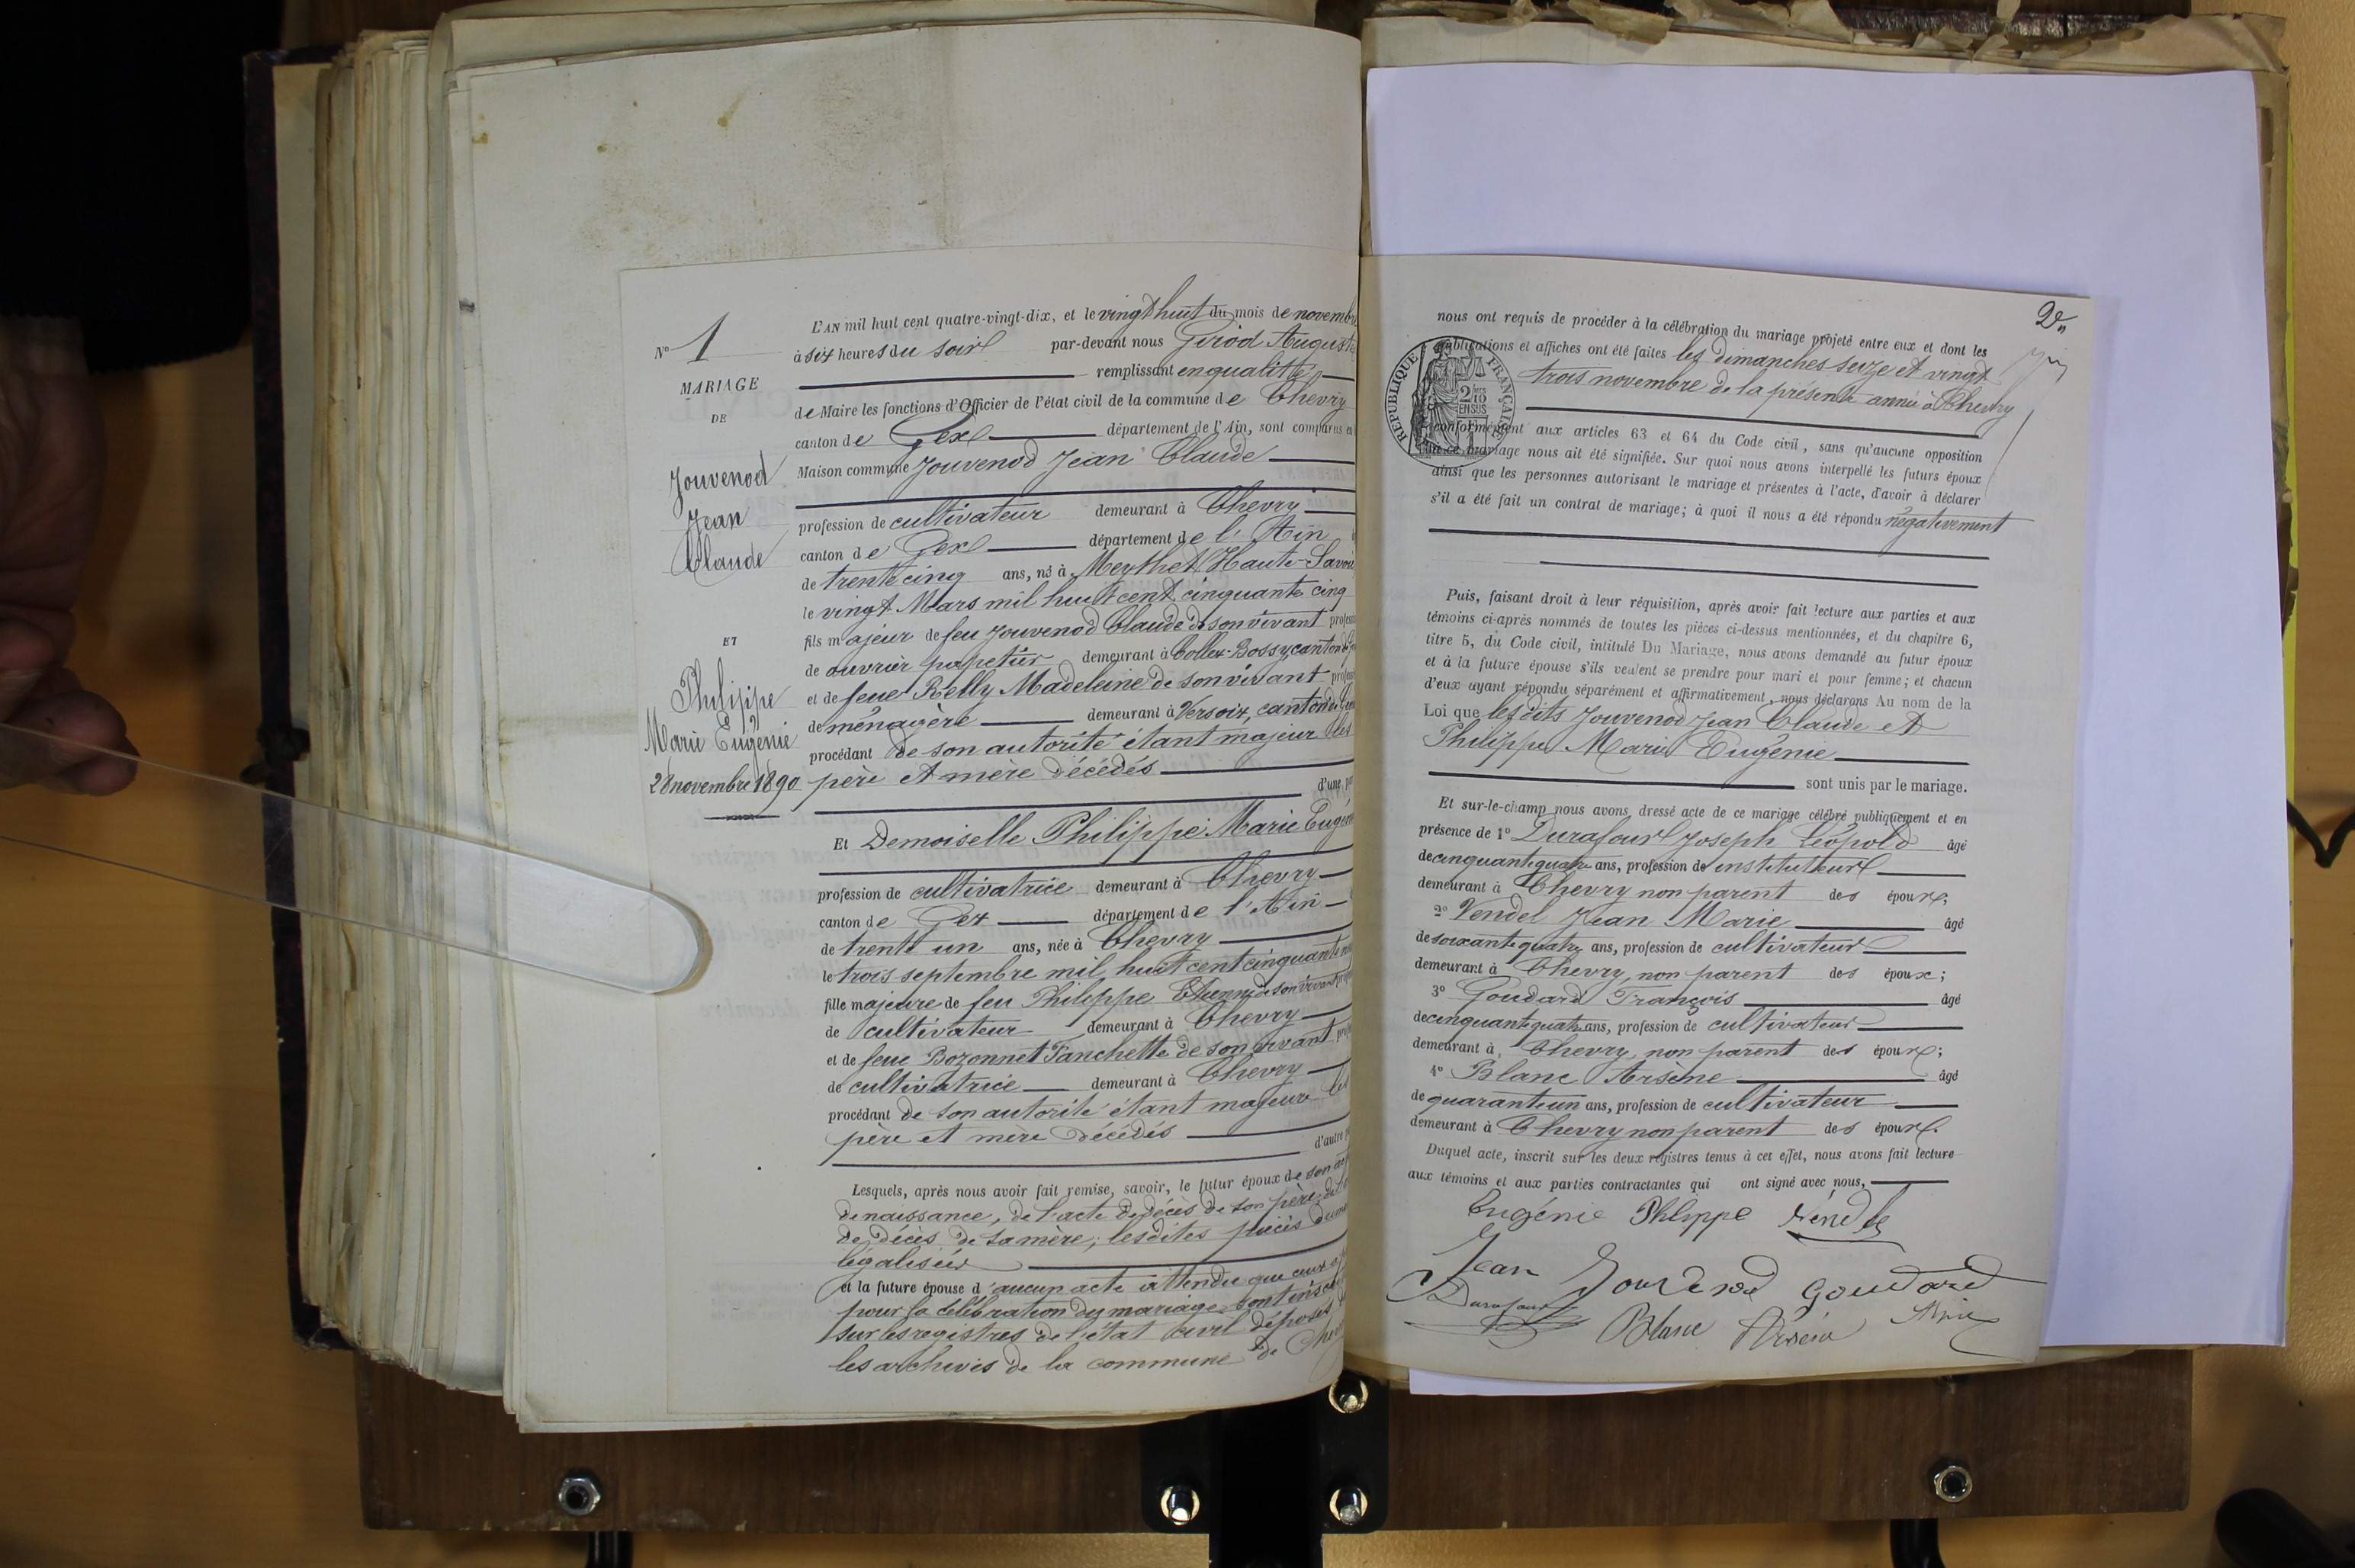 N° 1
MARIAGE
DE
Jouvenod
Jean
Claude
ET
Philippe
Marie Eugénie
28 novembre 1890
L'AN mil huit cent quatre-vingt-dix, et le vingt huit du mois de novembre
à six heures du soir par-devant nous Girod Auguste
remplissant en qualité
de Maire les fonctions d'Officier de l'état civil de la commune de Chevry
canton de Gex département de l'Ain, sont comparus en
Maison commune Jouvenod Jean Claude
profession de cultivateur demeurant à Chevry
canton de Gex département de l'Ain
de trente cinq ans, né à Meythet Haute-Savoie
le vingt Mars mil huit cent cinquante cinq
fils majeur de feu Jouvenod Claude de son vivant
de ouvrier papetier demeurant à Collex-Bossy canton de
et de feue Relly Madeleine de son vivant
de ménagère demeurant à Versoix, canton de
procédant de son autorité étant majeur les
père et mère décédés
d'une
Et Demoiselle Philippe Marie Eugénie
profession de cultivatrice demeurant à Chevry
canton de Gex département de l'Ain
de trente un ans, née à Chevry
le trois septembre mil huit cent cinquante
fille majeure de feu Philippe Etienne de son vivant
de cultivateur demeurant à Chevry
et de feue Bozonnet Fanchette de son vivant
de cultivatrice demeurant à Chevry
procédant de son autorité étant majeure les
père et mère décédés
d'autre
Lesquels, après nous avoir fait remise, savoir, le futur époux de son acte
de naissance, de l'acte de décès de son père, de
de décès de sa mère; lesdites pièces
légalisées
et la future épouse d'aucun acte attendu que ceux
pour la célébration du mariage sont
sur les registres de l'état civil déposés
les archives de la commune de
2e
nous ont requis de procéder à la célébration du mariage projeté entre eux et dont les
publications et affiches ont été faites les dimanches seize et vingt
trois novembre de la présente année à Chevry
RÉPUBLIQUE FRANÇAISE
2/10 EN SUS
conformément aux articles 63 et 64 du Code civil, sans qu'aucune opposition
à ce mariage nous ait été signifiée. Sur quoi nous avons interpellé les futurs époux
ainsi que les personnes autorisant le mariage et présentes à l'acte, d'avoir à déclarer
s'il a été fait un contrat de mariage; à quoi il nous a été répondu négativement
Puis, faisant droit à leur réquisition, après avoir fait lecture aux parties et aux
témoins ci-après nommés de toutes les pièces ci-dessus mentionnées, et du chapitre 6,
titre 5, du Code civil, intitulé Du Mariage, nous avons demandé au futur époux
et à la future épouse s'ils veulent se prendre pour mari et pour femme; et chacun
d'eux ayant répondu séparément et affirmativement, nous déclarons Au nom de la
Loi que lesdits Jouvenod Jean Claude et
Philippe Marie Eugénie
sont unis par le mariage.
Et sur-le-champ nous avons, dressé acte de ce mariage célébré publiquement et en
présence de 1° Durafour Joseph Léopold âgé
de cinquante quatre ans, profession de instituteur
demeurant à Chevry non parent des époux;
2° Vendel Jean Marie âgé
de soixante quatre ans, profession de cultivateur
demeurant à Chevry, non parent des époux;
3° Goudard François âgé
de cinquante quatre ans, profession de cultivateur
demeurant à Chevry, non parent des époux;
4° Blanc Arsène âgé
de quarante un ans, profession de cultivateur
demeurant à Chevry non parent des époux.
Duquel acte, inscrit sur les deux registres tenus à cet effet, nous avons fait lecture
aux témoins et aux parties contractantes qui ont signé avec nous,
Eugénie Phlippe Vendel
Jean Jouvenod Goudard
Durafour Blanc Arsène